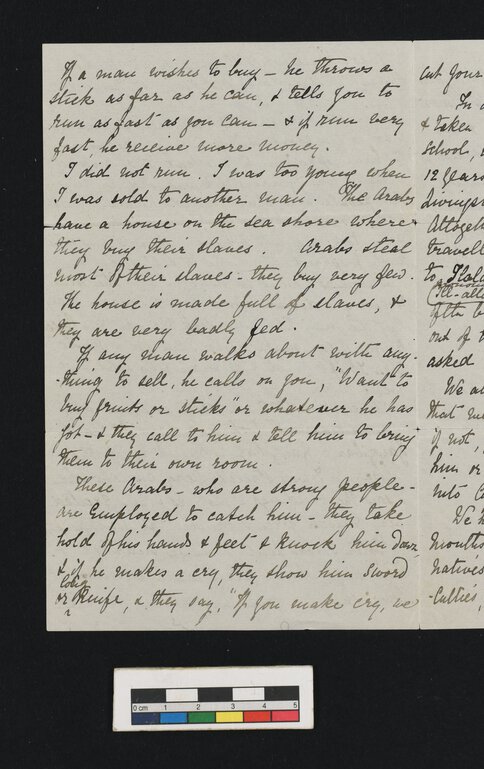 If a man wishes to buy - he throws a
stick as far as he can, & tells you to
run as fast as you can - & if run very
fast, he receive more money.
I did not run. I was too young when
I was sold to another man. The Arabs
have a house on the sea shore where
they buy their slaves. Arabs steal
most of their slaves - they buy very few.
The house is made full of slaves, &
they are very badly fed.
If any man walks about with any-
thing to sell, he calls on you, "Want to
buy fruits or sticks" or whatever he has
got - & they call to him & tell him to bring
them to their own room.
These Arabs - who are strong people -
are Employed to catch him - they take
hold of his hands & feet & knock him down
& if he makes a cry, they show him Sword
or long Knife, & they say, "If you make cry, we
cut your
In
& taken
School,
12 Years
Living
Altoget
travell
to
out of
asked
We
that we
if not,
him or
into
We
Months
natives
-culties,
0 cm 1 2 3 4 5